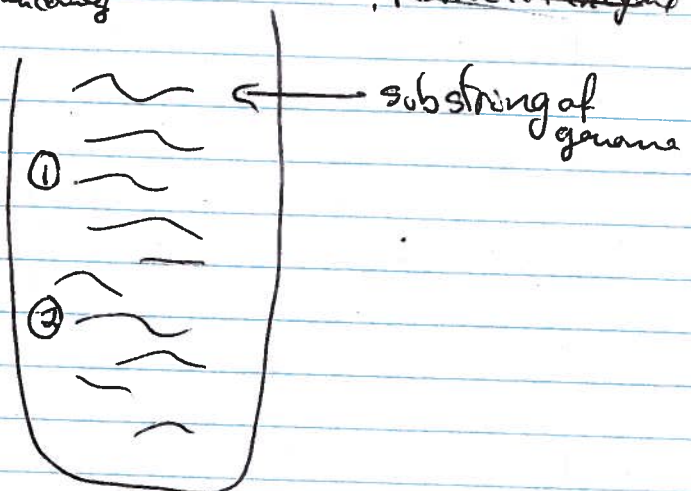 substring of
genome
①
②